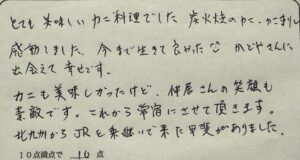 とても美味しいカニ料理でした 炭火焼のカニ、カニ刺し
感動しました、今まで生きて良かった☺ かどやさんに
出会えて幸せです。
カニも美味しかったけど、仲居さんの笑顔も
素敵です。これから常宿にさせて頂きます。
北九州からJRと乗継いで来た甲斐がありました。
10点満点で 10 点